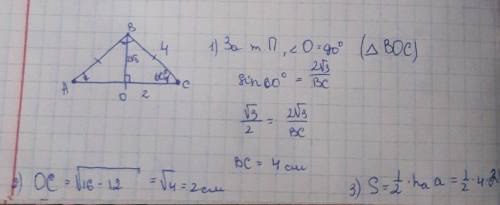 B
4
2√3
A
60°
C
O
2
1) За т П, ∠O = 90° (△BOC)
sin 60° = 2√3/BC
√3/2 = 2√3/BC
BC = 4 см
2) OC = √16 - 12 = √4 = 2 см
3) S = 1/2 · hₐ a = 1/2 · 4 · 2